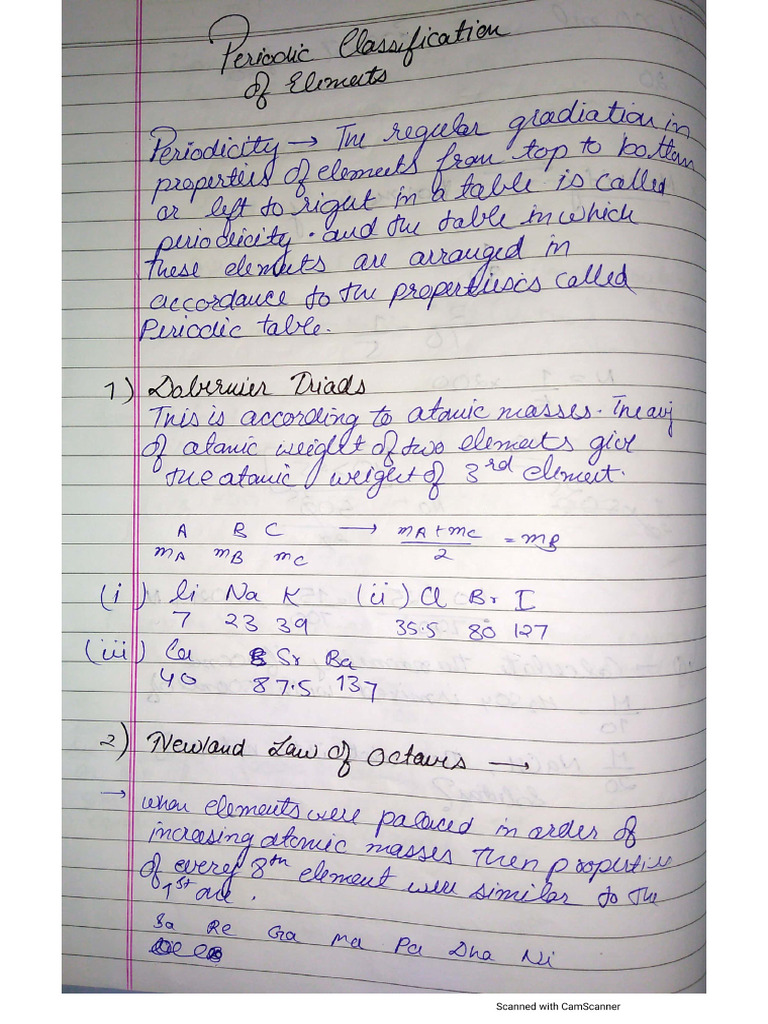 Periodic Classification
of Elements
Periodicity → The regular gradiation in
properties of elements from top to bottom
or left to right in a table is called
periodicity. and the table in which
these elements are arranged in
accordance to the properties is called
Periodic table.
1) Dobernier Triads
This is according to atomic masses. The avg
of atomic weight of two elements give
the atomic weight of 3rd element.
A B C → mA+mC/2 = mB
mA mB mC
(i) Li Na K (ii) Cl Br I
7 23 39 35.5 80 127
(iii) Ca Sr Ba
40 87.5 137
2) Newland Law of Octaves →
→ when elements were palaced in order of
increasing atomic masses then properties
of every 8th element were similar to the
1st one.
Sa Re Ga Ma Pa Dha Ni
Scanned with CamScanner